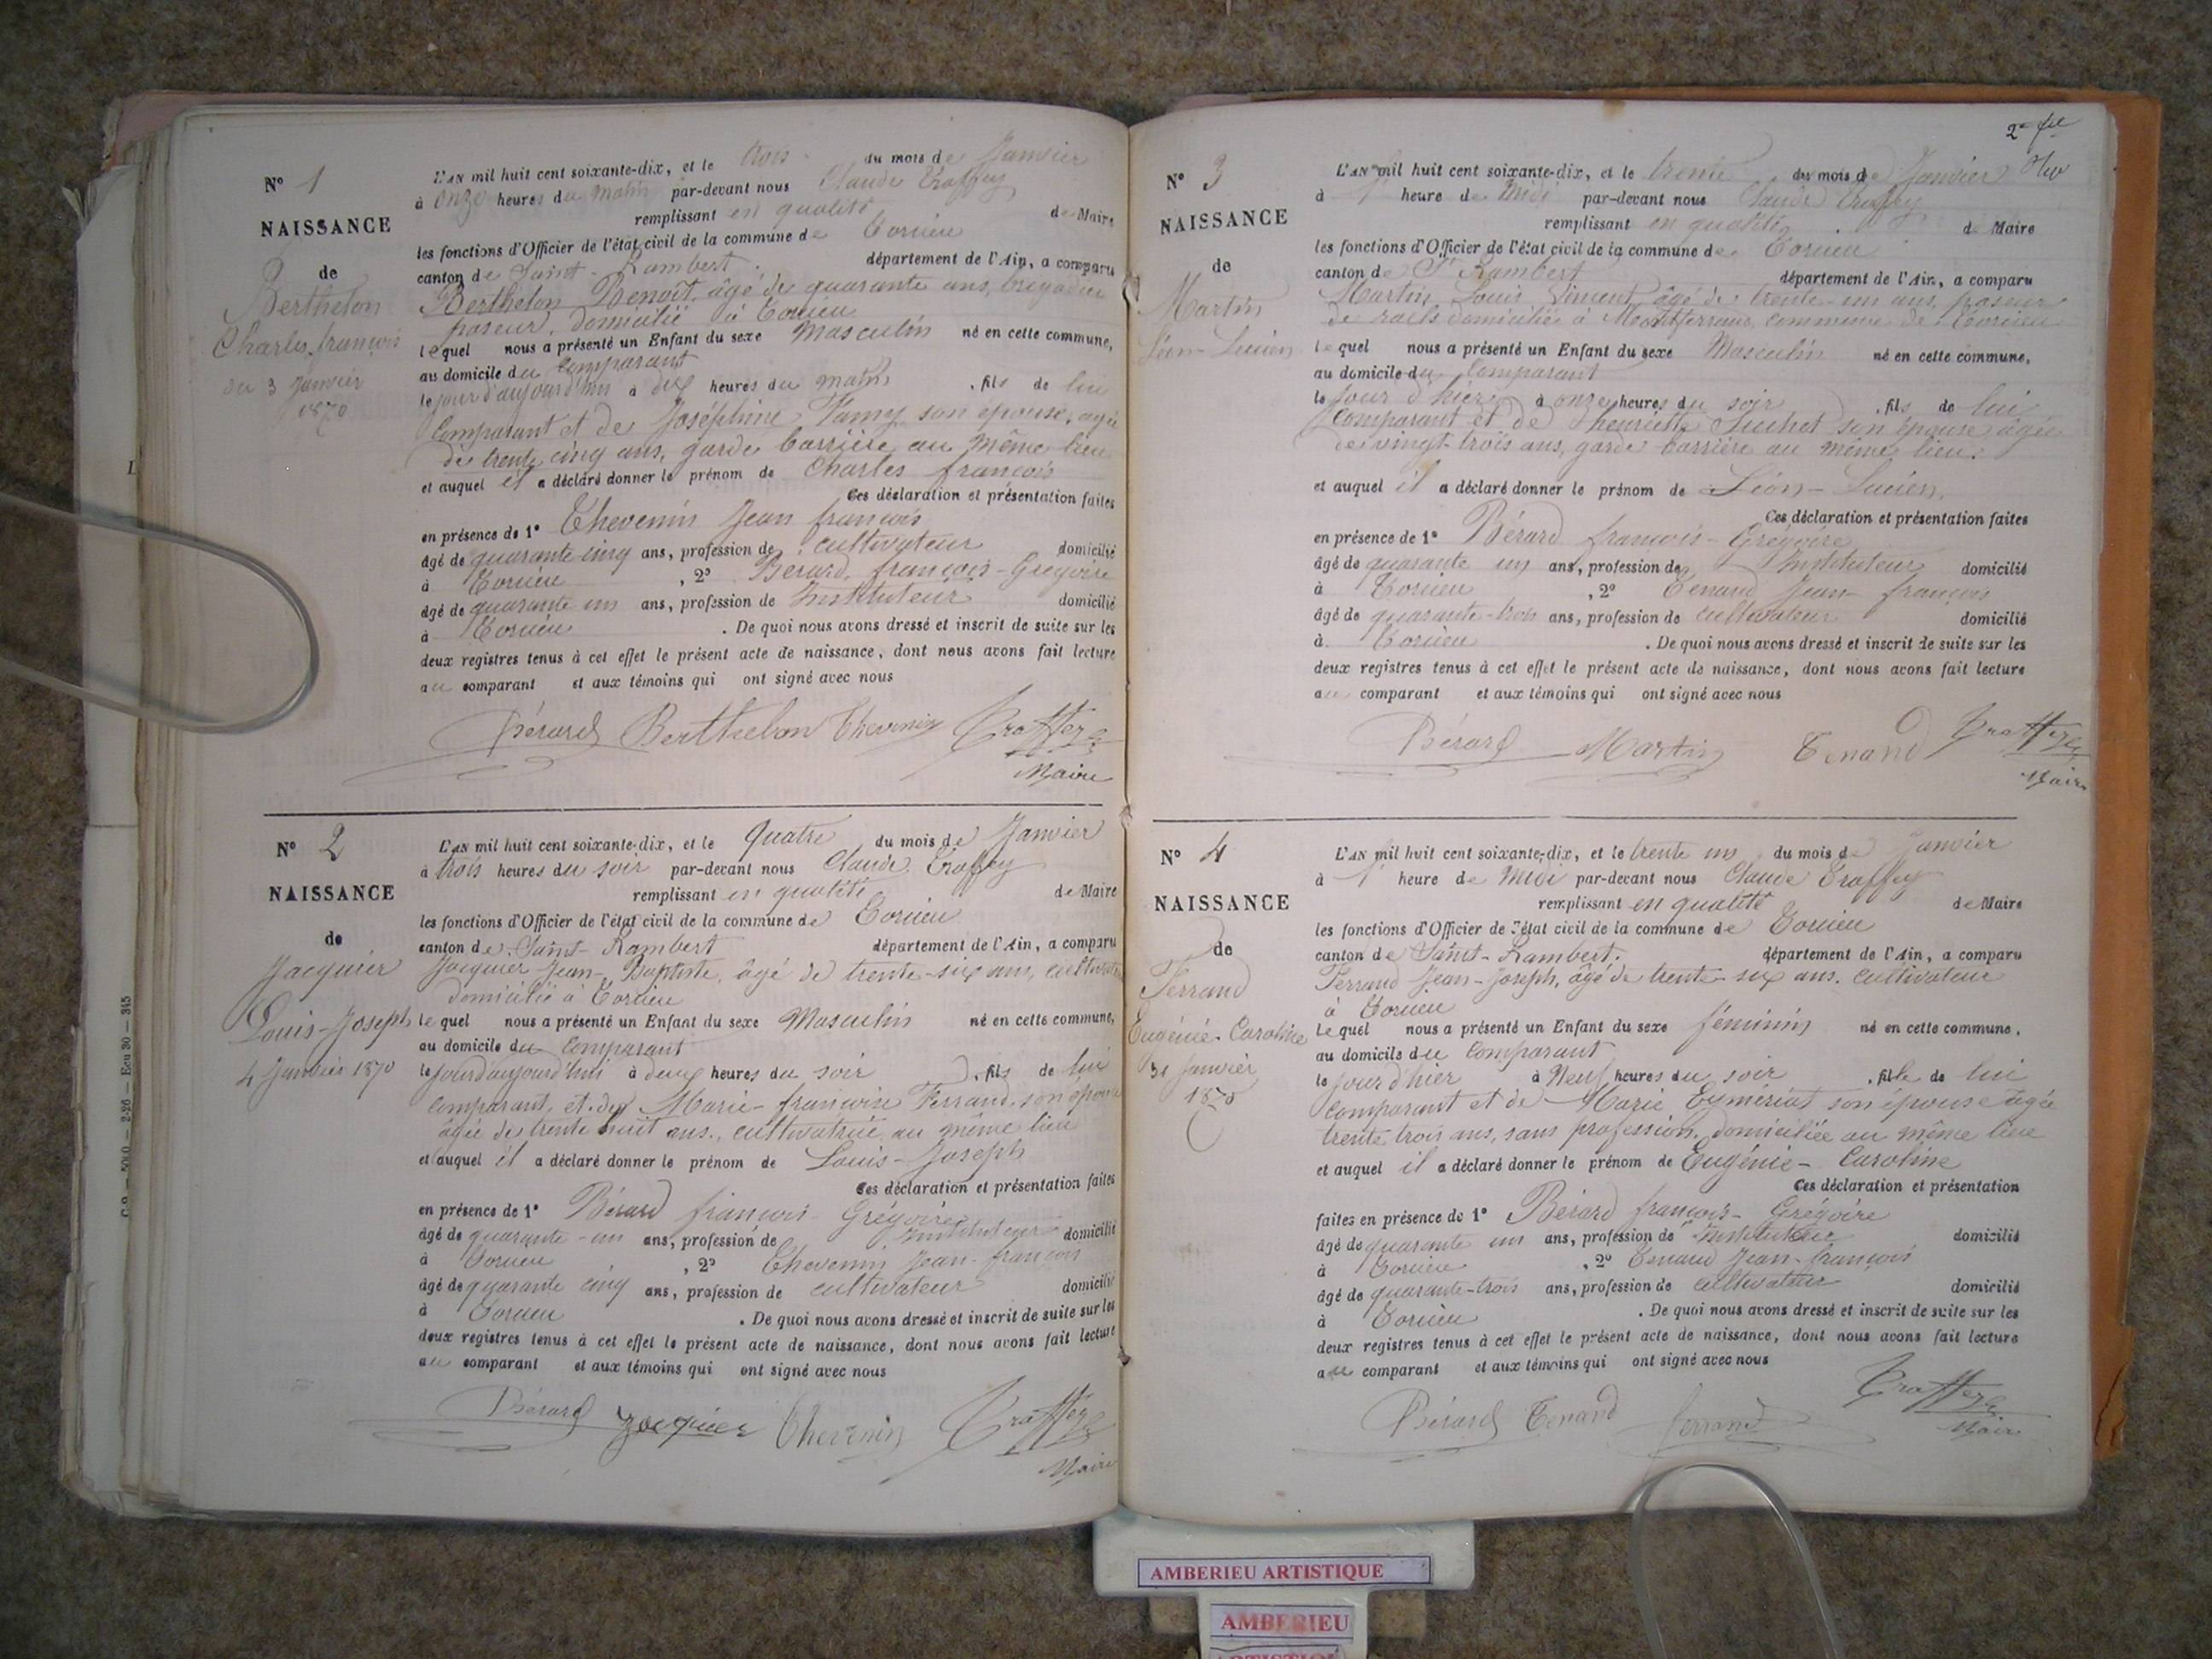 N° 1
NAISSANCE
de
Berthelon
Charles françois
du 3 Janvier
1870
L'AN mil huit cent soixante-dix, et le trois du mois de Janvier
à onze heures du matin par-devant nous Claude Traffey
remplissant en qualité de Maire
les fonctions d'Officier de l'état civil de la commune de Torcieu
canton de Saint-Rambert département de l'Ain, a comparu
Berthelon Benoît, âgé de quarante ans, brigadier
poseur, domicilié à Torcieu
lequel nous a présenté un Enfant du sexe Masculin né en cette commune,
au domicile du Comparant
le jour d'aujourd'hui à dix heures du matin, fils de lui
Comparant et de Joséphine Tamy son épouse, agée
de trente cinq ans, garde barrière au même lieu
et auquel il a déclaré donner le prénom de Charles françois
Ces déclaration et présentation faites
en présence de 1° Thevenin Jean françois
âgé de quarante cinq ans, profession de cultivateur domicilié
à Torcieu, 2° Bérard, françois-Grégoire
âgé de quarante un ans, profession de Instituteur domicilié
à Torcieu. De quoi nous avons dressé et inscrit de suite sur les
deux registres tenus à cet effet le présent acte de naissance, dont nous avons fait lecture
au comparant et aux témoins qui ont signé avec nous
Bérard Berthelon Thevenin Traffey
Maire
N° 2
NAISSANCE
de
Jacquier
Louis-Joseph
4 Janvier 1870
L'AN mil huit cent soixante-dix, et le Quatre du mois de Janvier
à trois heures du soir par-devant nous Claude Traffey
remplissant en qualité de Maire
les fonctions d'Officier de l'état civil de la commune de Torcieu
canton de Saint-Rambert département de l'Ain, a comparu
Jacquier Jean-Baptiste, âgé de trente-six ans, cultivateur
domicilié à Torcieu
lequel nous a présenté un Enfant du sexe Masculin né en cette commune,
au domicile du Comparant
le jour d'aujourd'hui à deux heures du soir, fils de lui
comparant, et de Marie-françoise Ferrand, son épouse
âgée de trente huit ans, cultivatrice au même lieu
et auquel il a déclaré donner le prénom de Louis-Joseph
Ces déclaration et présentation faites
en présence de 1° Bérard françois-Grégoire
âgé de quarante-un ans, profession de Instituteur domicilié
à Torcieu, 2° Thevenin Jean-françois
âgé de quarante cinq ans, profession de cultivateur domicilié
à Torcieu. De quoi nous avons dressé et inscrit de suite sur les
deux registres tenus à cet effet le présent acte de naissance, dont nous avons fait lecture
au comparant et aux témoins qui ont signé avec nous
Bérard Jacquier Thevenin Traffey
Maire
N° 3
NAISSANCE
de
Martin
Léon-Lucien
L'AN mil huit cent soixante-dix, et le trente du mois de Janvier
à 1 heure de Midi par-devant nous Claude Traffey
remplissant en qualité de Maire
les fonctions d'Officier de l'état civil de la commune de Torcieu
canton de St Rambert département de l'Ain, a comparu
Martin Louis Vincent âgé de trente-un ans, poseur
de rails domicilié à Montferrand, commune de Torcieu
lequel nous a présenté un Enfant du sexe Masculin né en cette commune,
au domicile du Comparant
le Jour d'hier à onze heures du soir, fils de lui
Comparant et de henriette Suchet son épouse agée
de vingt-trois ans, garde barrière au même lieu.
et auquel il a déclaré donner le prénom de Léon-Lucien.
Ces déclaration et présentation faites
en présence de 1° Bérard françois-Grégoire
âgé de quarante un ans, profession de Instituteur domicilié
à Torcieu, 2° Tenand Jean-françois
âgé de quarante-trois ans, profession de cultivateur domicilié
à Torcieu. De quoi nous avons dressé et inscrit de suite sur les
deux registres tenus à cet effet le présent acte de naissance, dont nous avons fait lecture
au comparant et aux témoins qui ont signé avec nous
Bérard Martin Tenand Traffey
Maire
N° 4
NAISSANCE
de
Ferrand
Eugénie-Caroline
31 Janvier
1870
L'AN mil huit cent soixante-dix, et le trente un du mois de Janvier
à 1 heure de Midi par-devant nous Claude Traffey
remplissant en qualité de Maire
les fonctions d'Officier de l'état civil de la commune de Torcieu
canton de Saint-Rambert. département de l'Ain, a comparu
Ferrand Jean-Joseph, âgé de trente-six ans. cultivateur
à Torcieu
lequel nous a présenté un Enfant du sexe féminin né en cette commune,
au domicile du Comparant
le jour d'hier à Neuf heures du soir, fille de lui
Comparant et de Marie Eymériat son épouse agée
trente trois ans, sans profession, domiciliée au même lieu
et auquel il a déclaré donner le prénom de Eugénie-Caroline
Ces déclaration et présentation
faites en présence de 1° Bérard françois-Grégoire
âgé de quarante un ans, profession de Instituteur domicilié
à Torcieu, 2° Tenand Jean-françois
âgé de quarante-trois ans, profession de cultivateur domicilié
à Torcieu. De quoi nous avons dressé et inscrit de suite sur les
deux registres tenus à cet effet le présent acte de naissance, dont nous avons fait lecture
au comparant et aux témoins qui ont signé avec nous
Bérard Tenand ferrand Traffey
Maire
AMBERIEU ARTISTIQUE
AMBERIEU
ARTISTIQUE